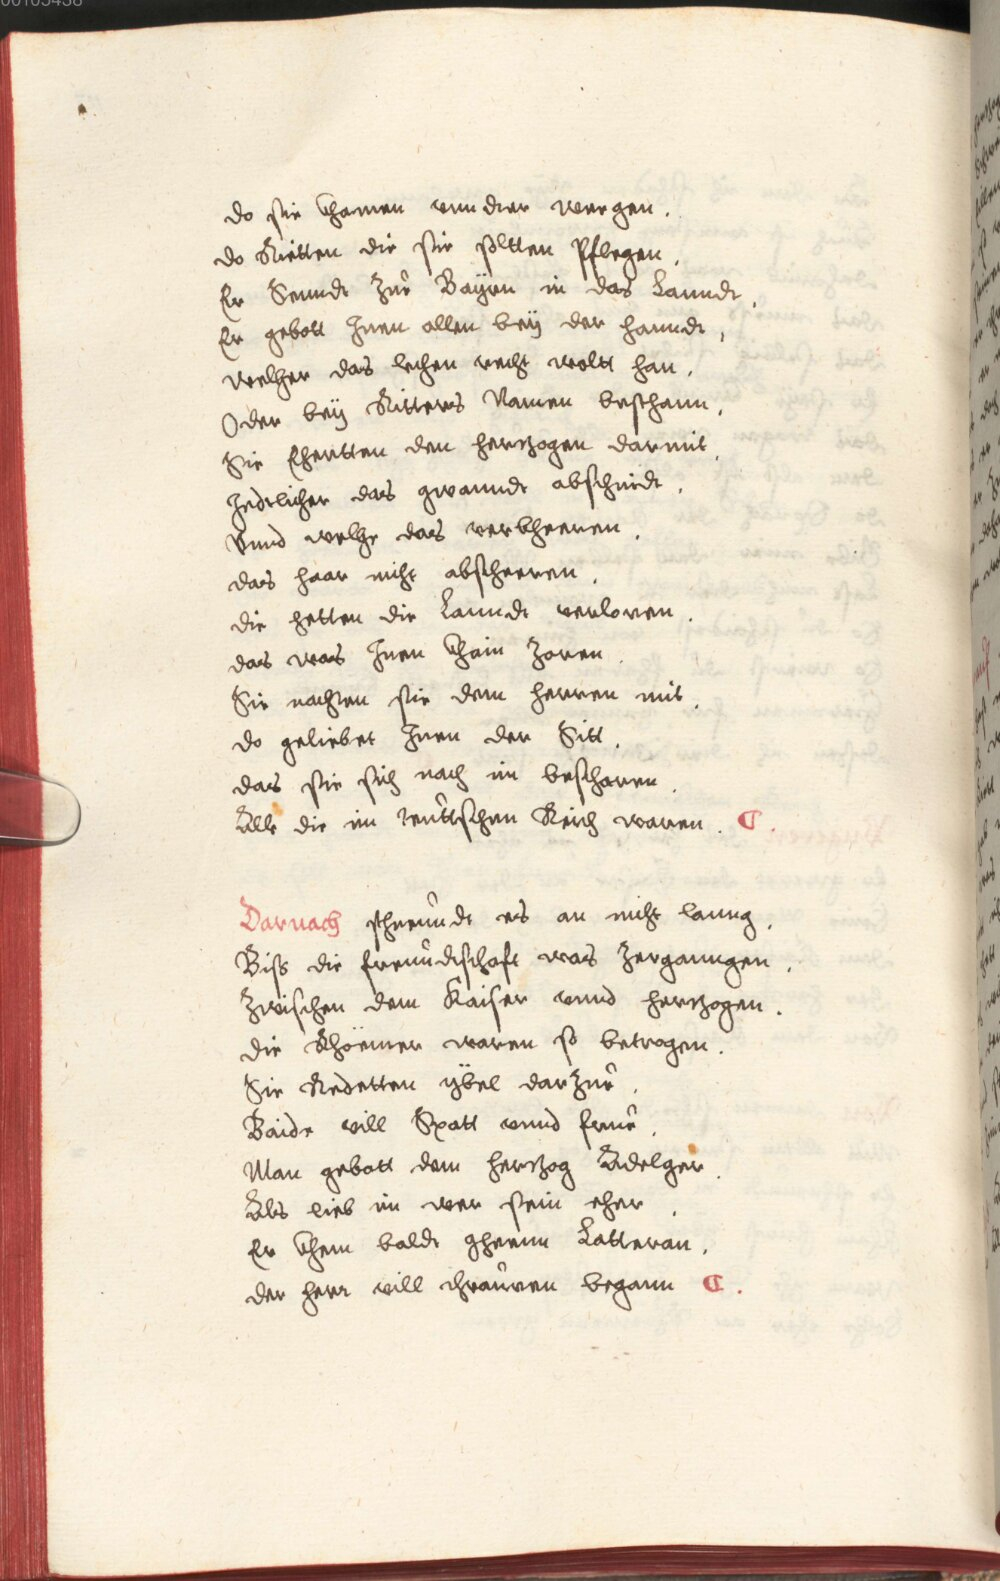 00105438
do sie khamen vnnder wergen.
do Rietten die sie soltten Pflegen.
Er Sennde Zur Bayrn in das Lannde.
Er gebott Inen allen bey der hannde,
welcher das lehen recht wollt han.
Oder bey Ritters Namen beschann.
Sie Eherten den herzogen darmit.
Jedtlicher das gwannde abschnide.
Vnnd welche das verkheeren.
das haar nicht abscheeren.
die hetten die Lannde verloren.
das was Inen khain Zoren.
Sie machten sie dem herren mit.
do geliebet Inen der Sitt.
das sie sich nach im bescharen.
Alle die im teuttschen Reich waren.
Darnach schennde es an nicht lanng.
Biss die freundtschaft was Zerganngen.
Zwischen dem Kaiser vnnd herzogen.
die Rhöemer waren so betrogen.
Sie Redetten ybel darZue.
Baide vill Spatt vnnd frue.
Man gebott dem herzog Adelger.
Als lieb im wer sein eher.
Er khem balde gheenn Latteran.
der herr vill thrauren begann